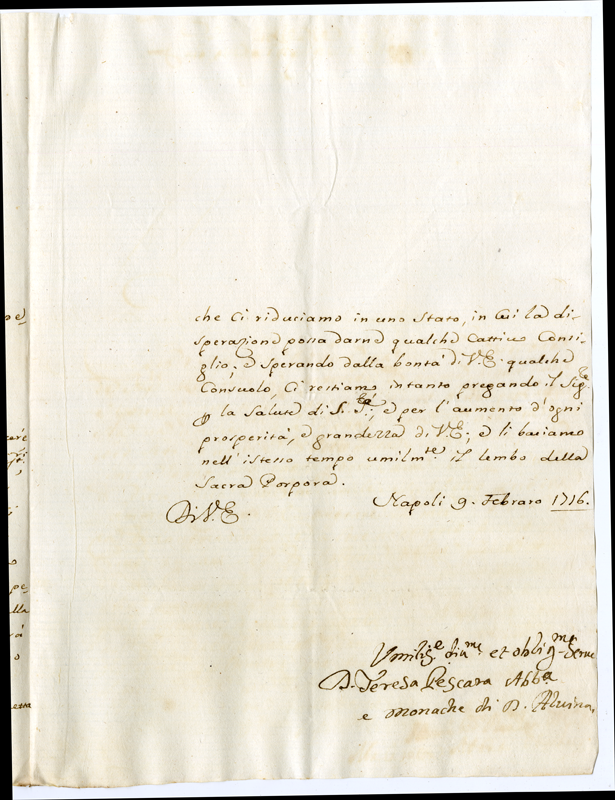 che ci riduciamo in uno Stato, in cui la di-
sperazione possa darne qualche cattivo Consi-
glio; e sperando dalla bontà di V.E. qualche
Consuolo, ci restiamo intanto pregando il Sigre
la salute di S. Stà, e per l'aumento d'ogni
prosperità, e grandezza di V.E., e li baciamo
nell'istesso tempo umilmte il lembo della
Sacra Porpora.
Napoli 9. Febraro 1716.
Di V.E.
Umilise diume et obligme Serve
D. Teresa Pescara Abba
e monache di D. Alvina